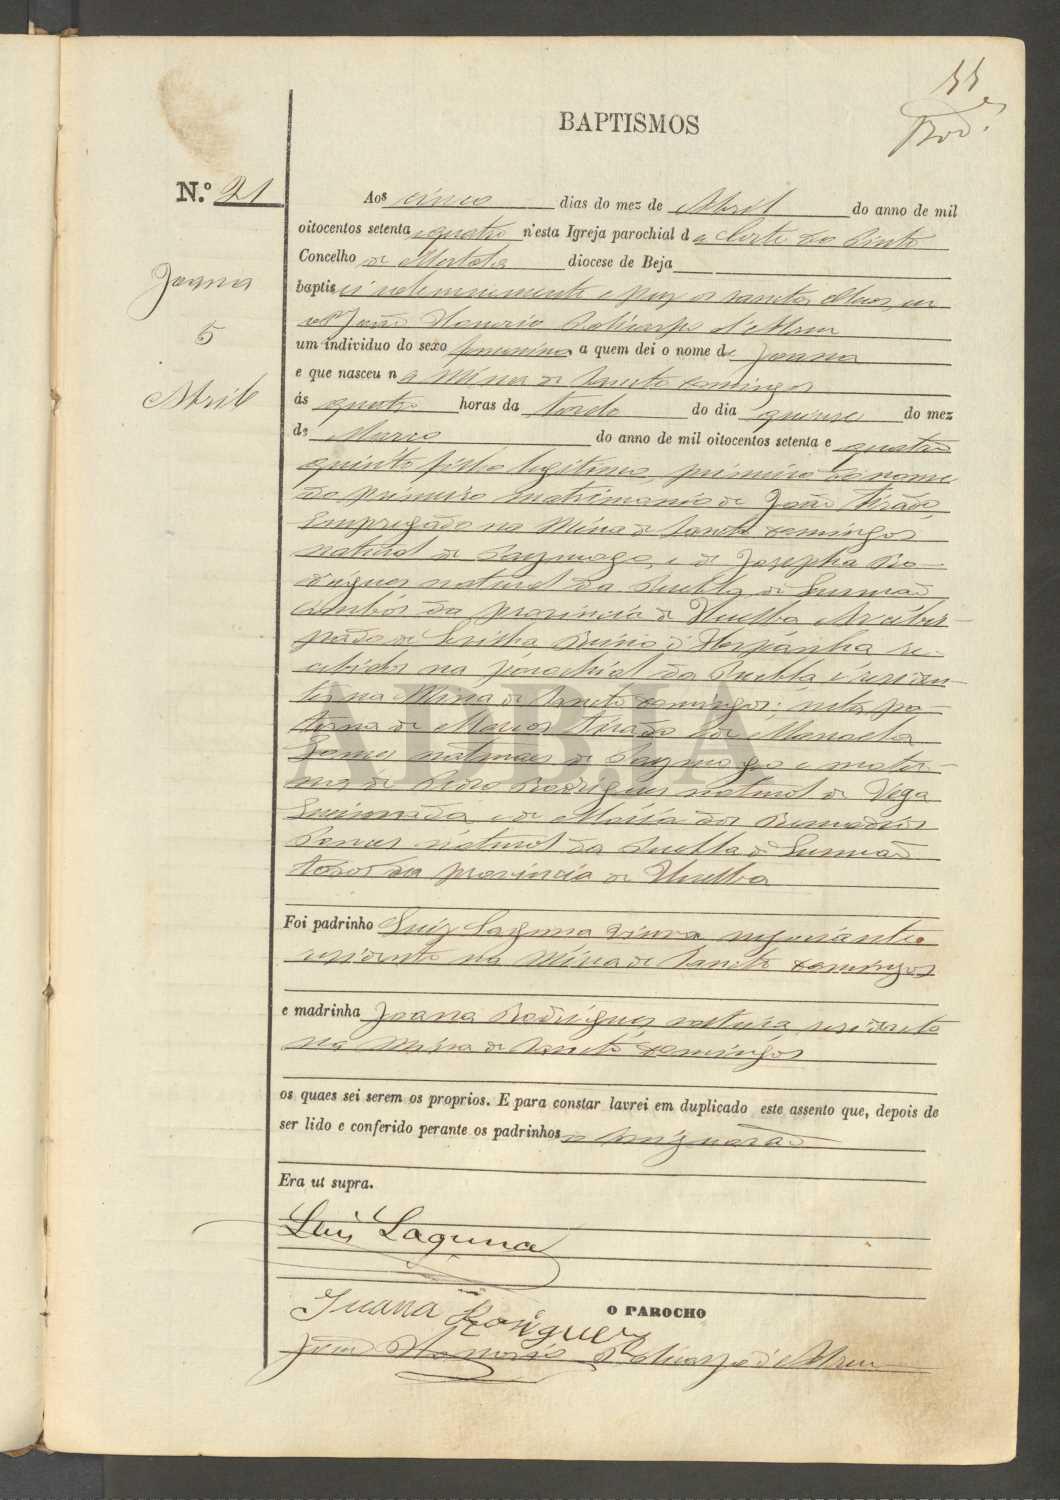 11
BAPTISMOS
N.º 21
Joana
5
Abril
Aos cinco dias do mez de Abril do anno de mil
oitocentos setenta e quatro n'esta Igreja parochial da Corte do Pinto
Concelho de Mertola diocese de Beja
baptisei solemnemente e puz os sanctos oleos, eu
João Honorio Policarpo d'Abreu
um individuo do sexo femenino a quem dei o nome de Joana
e que nasceu na Mina de Sancto Domingos
ás quatro horas da tarde do dia quinse do mez
de Março do anno de mil oitocentos setenta e quatro
quinto filho legitimo, primeiro do nome
do primeiro matrimonio de João Tirado,
Empregado na Mina de Sancto Domingos
natural de Paymogo, e de Josepha Ro-
drigues natural da Puebla de Gusmão
ambos da provincia de Huelba Arcebis-
pado de Sevilha Reino d'Hespanha re-
cebidos na parochial da Puebla, e residen-
tes na Mina de Sancto Domingos; neta pa-
terna de Marcos Tirado e de Manoela
Gomes naturaes de Paymogo e mater-
na de Pedro Rodrigues natural de Vega
e de Maria dos Remedios
Peres natural da Puebla de Gusmão
todos na provincia de Huelba
Foi padrinho Luiz Laguna negociante
residente na Mina de Sancto Domingos
e madrinha Joana Rodrigues, solteira, residente
na Mina de Sancto Domingos
os quaes sei serem os proprios. E para constar lavrei em duplicado este assento que, depois de
ser lido e conferido perante os padrinhos assignarão
Era ut supra.
Luis Laguna
Juana Rosiguez
O PAROCHO
João Honorio Policarpo d'Abreu
ADBJA